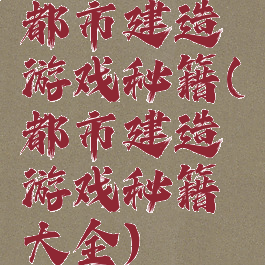 都市建造
游戏秘籍(
都市建造
游戏秘籍
大全)